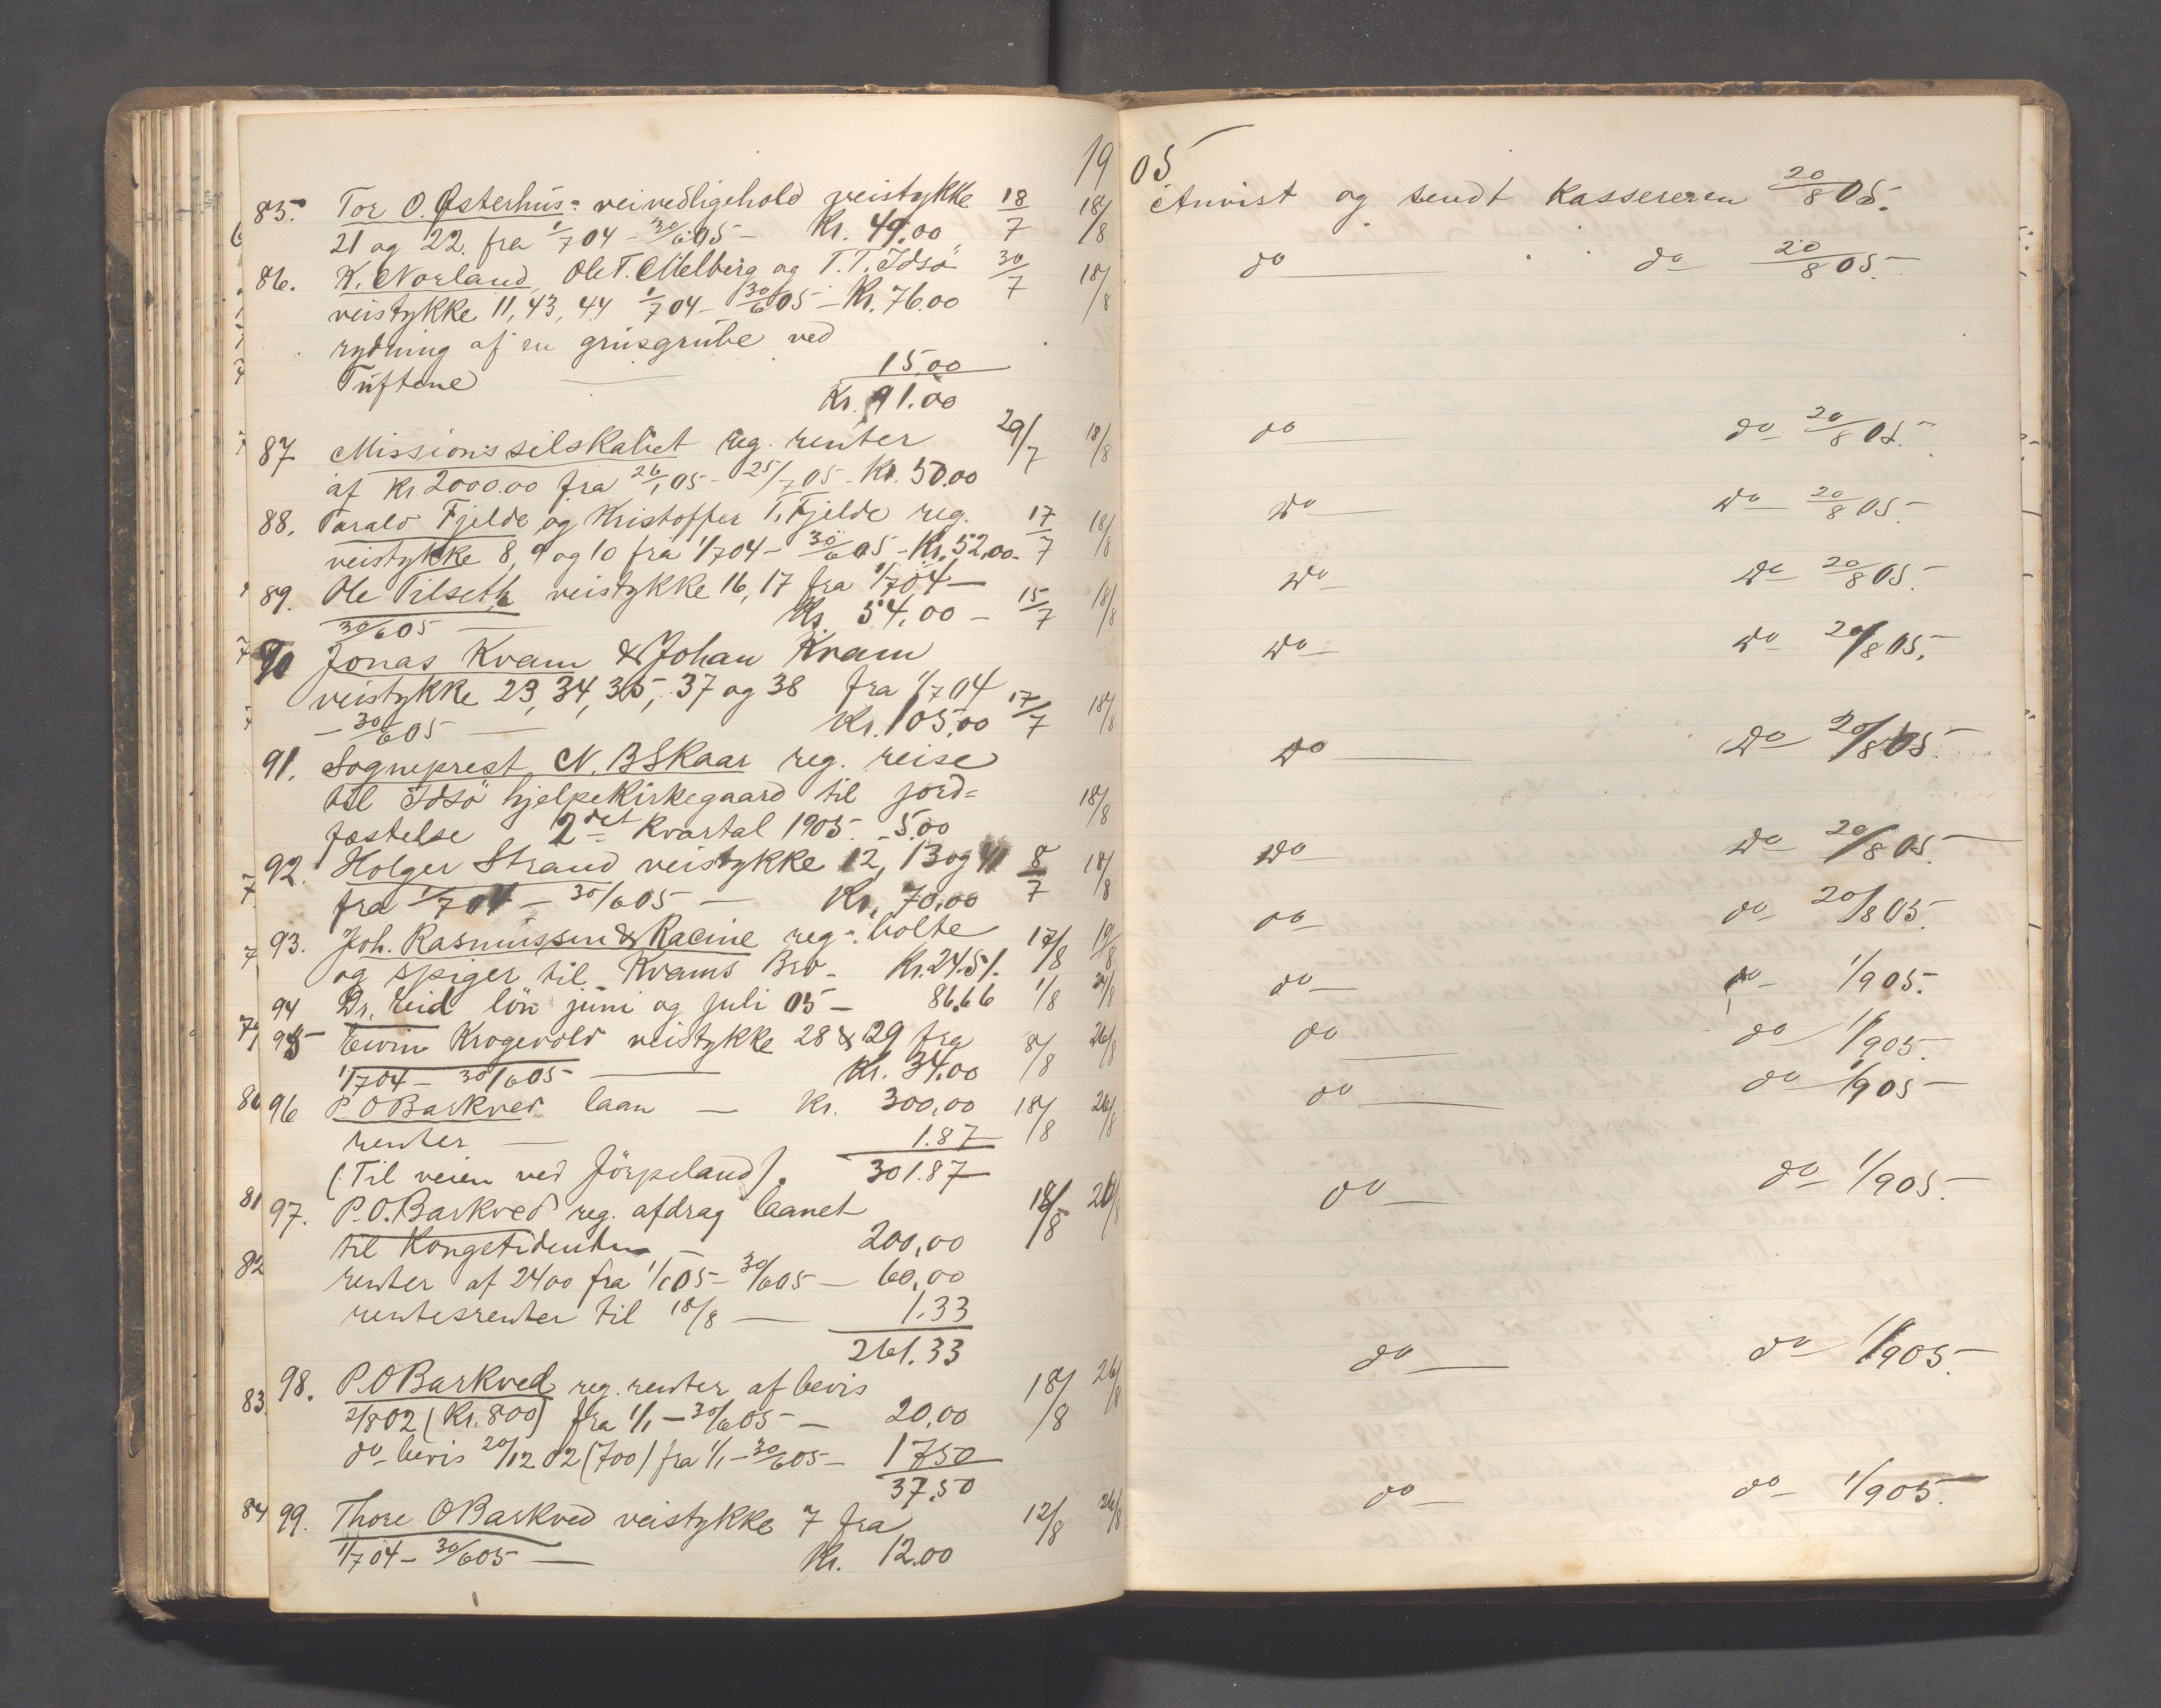 19 05
85. Tor O. Østerhus: veivedligehold veistykke 18/7 18/8 Anvist og sendt Kassereren 20/8 05.
21 og 22. fra 1/7 04 - 30/6 05 - Kr. 49.00
86. K. Norland, Ole T. Melberg og T. T. Idsö 30/7 18/8 do do 20/8 05.
veistykke 11, 43, 44 1/7 04 - 30/6 05 - Kr. 76.00
rydning af en grusgrube ved
Tuftene 15.00
Kr. 91.00
87 Missionsselskabet reg. renter 29/7 18/8 do do 20/8 05.
af Kr 2000.00 fra 26/1 05 - 25/7 05 - Kr. 50.00
88. Tarald Fjelde og Kristoffer T. Fjelde reg. 17/7 18/8 do do 20/8 05.
veistykke 8, 9 og 10 fra 1/7 04 - 30/6 05 - Kr. 52.00
89. Ole Tilseth veistykke 16, 17 fra 1/7 04 - 15/7 18/8 do do 20/8 05.
30/6 05 - Kr. 54.00 -
90 Jonas Kvam & Johan Kvam do do 20/8 05.
veistykke 23, 34, 35, 37 og 38 fra 1/7 04 17/7 18/8
- 30/6 05 - Kr. 105.00
91. Sogneprest N. B Skaar reg. reise do do 20/8 05.
til Idsö hjelpekirkegaard til jord= 18/8
fæstelse 2det Kvartal 1905. - 5.00
92. Holger Strand veistykke 12, 13 og 41 8/7 18/8 do do 20/8 05.
fra 1/7 04 - 30/6 05 - Kr. 70.00
93. Joh. Rasmussen & Racine reg: bolte 17/8 19/8 do do 20/8 05.
og spiger til Kvams Bro - Kr. 24.51.
94 Dr. Reid lön juni og juli 05 - 86.66 1/8 24/8 do do 1/9 05.
95 Eivin Krogevold veistykke 28 & 29 fra 8/8 26/8 do do 1/9 05.
1/7 04 - 30/6 05 - Kr. 34.00
80 96 P. O Barkved laan - Kr. 300.00 18/8 26/8 do do 1/9 05
renter - 1.87
(Til veien ved Jörpeland). 301.87
81 97. P. O. Barkved reg. afdrag laanet 18/8 26/8 do do 1/9 05.
til Kongetidenden 200,00
82 renter af 2400 fra 1/1 05 - 30/6 05 - 60,00
rentesrenter til 18/8 - 1.33
261.33
83 98. P. O Barkved reg. renter af bevis 18/8 26/8 do do 1/9 05.
2/8 02 (Kr. 800) fra 1/1 - 30/6 05 - 20.00
do bevis 20/12 02 (700) fra 1/1 - 30/6 05 - 17.50
37.50
84 99. Thore O Barkved veistykke 7 fra 12/8 26/8 do do 1/9 05.
1/7 04 - 30/6 05 - Kr. 12.00